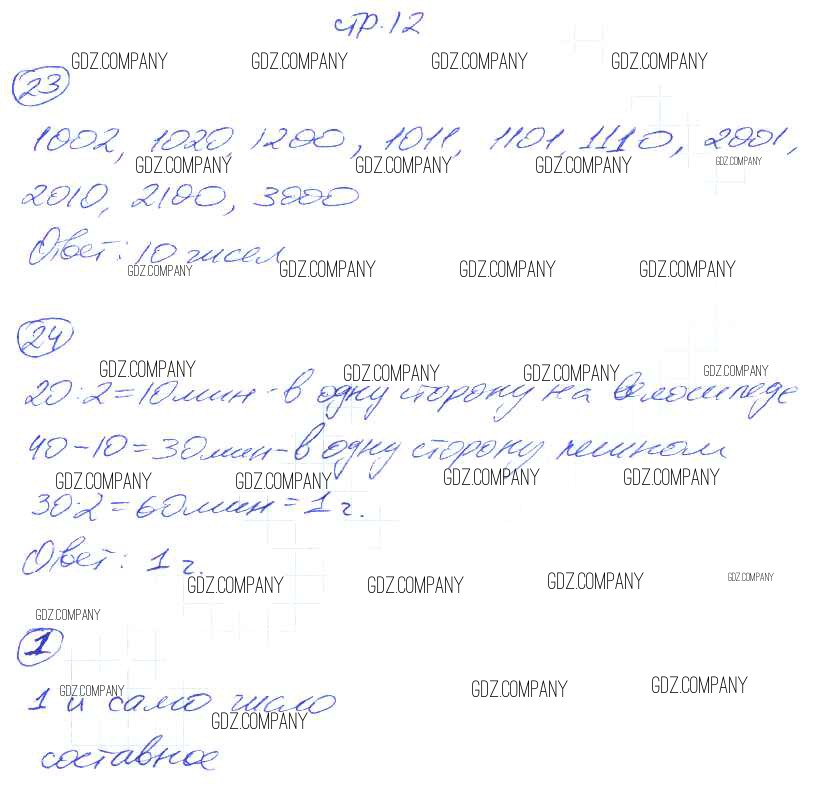 стр. 12
GDZ.COMPANY GDZ.COMPANY GDZ.COMPANY GDZ.COMPANY
23
1002, 1020, 1200, 1011, 1101, 1110, 2001,
GDZ.COMPANY GDZ.COMPANY GDZ.COMPANY GDZ.COMPANY
2010, 2100, 3000
Ответ: 10 чисел
GDZ.COMPANY GDZ.COMPANY GDZ.COMPANY GDZ.COMPANY
24
GDZ.COMPANY GDZ.COMPANY GDZ.COMPANY GDZ.COMPANY
20:2=10мин - в одну сторону на велосипеде
40-10=30мин - в одну сторону пешком
GDZ.COMPANY GDZ.COMPANY GDZ.COMPANY GDZ.COMPANY
30·2=60мин=1 ч.
Ответ: 1 ч.
GDZ.COMPANY GDZ.COMPANY GDZ.COMPANY GDZ.COMPANY
GDZ.COMPANY
1
GDZ.COMPANY GDZ.COMPANY GDZ.COMPANY
1 и само число
GDZ.COMPANY
составное